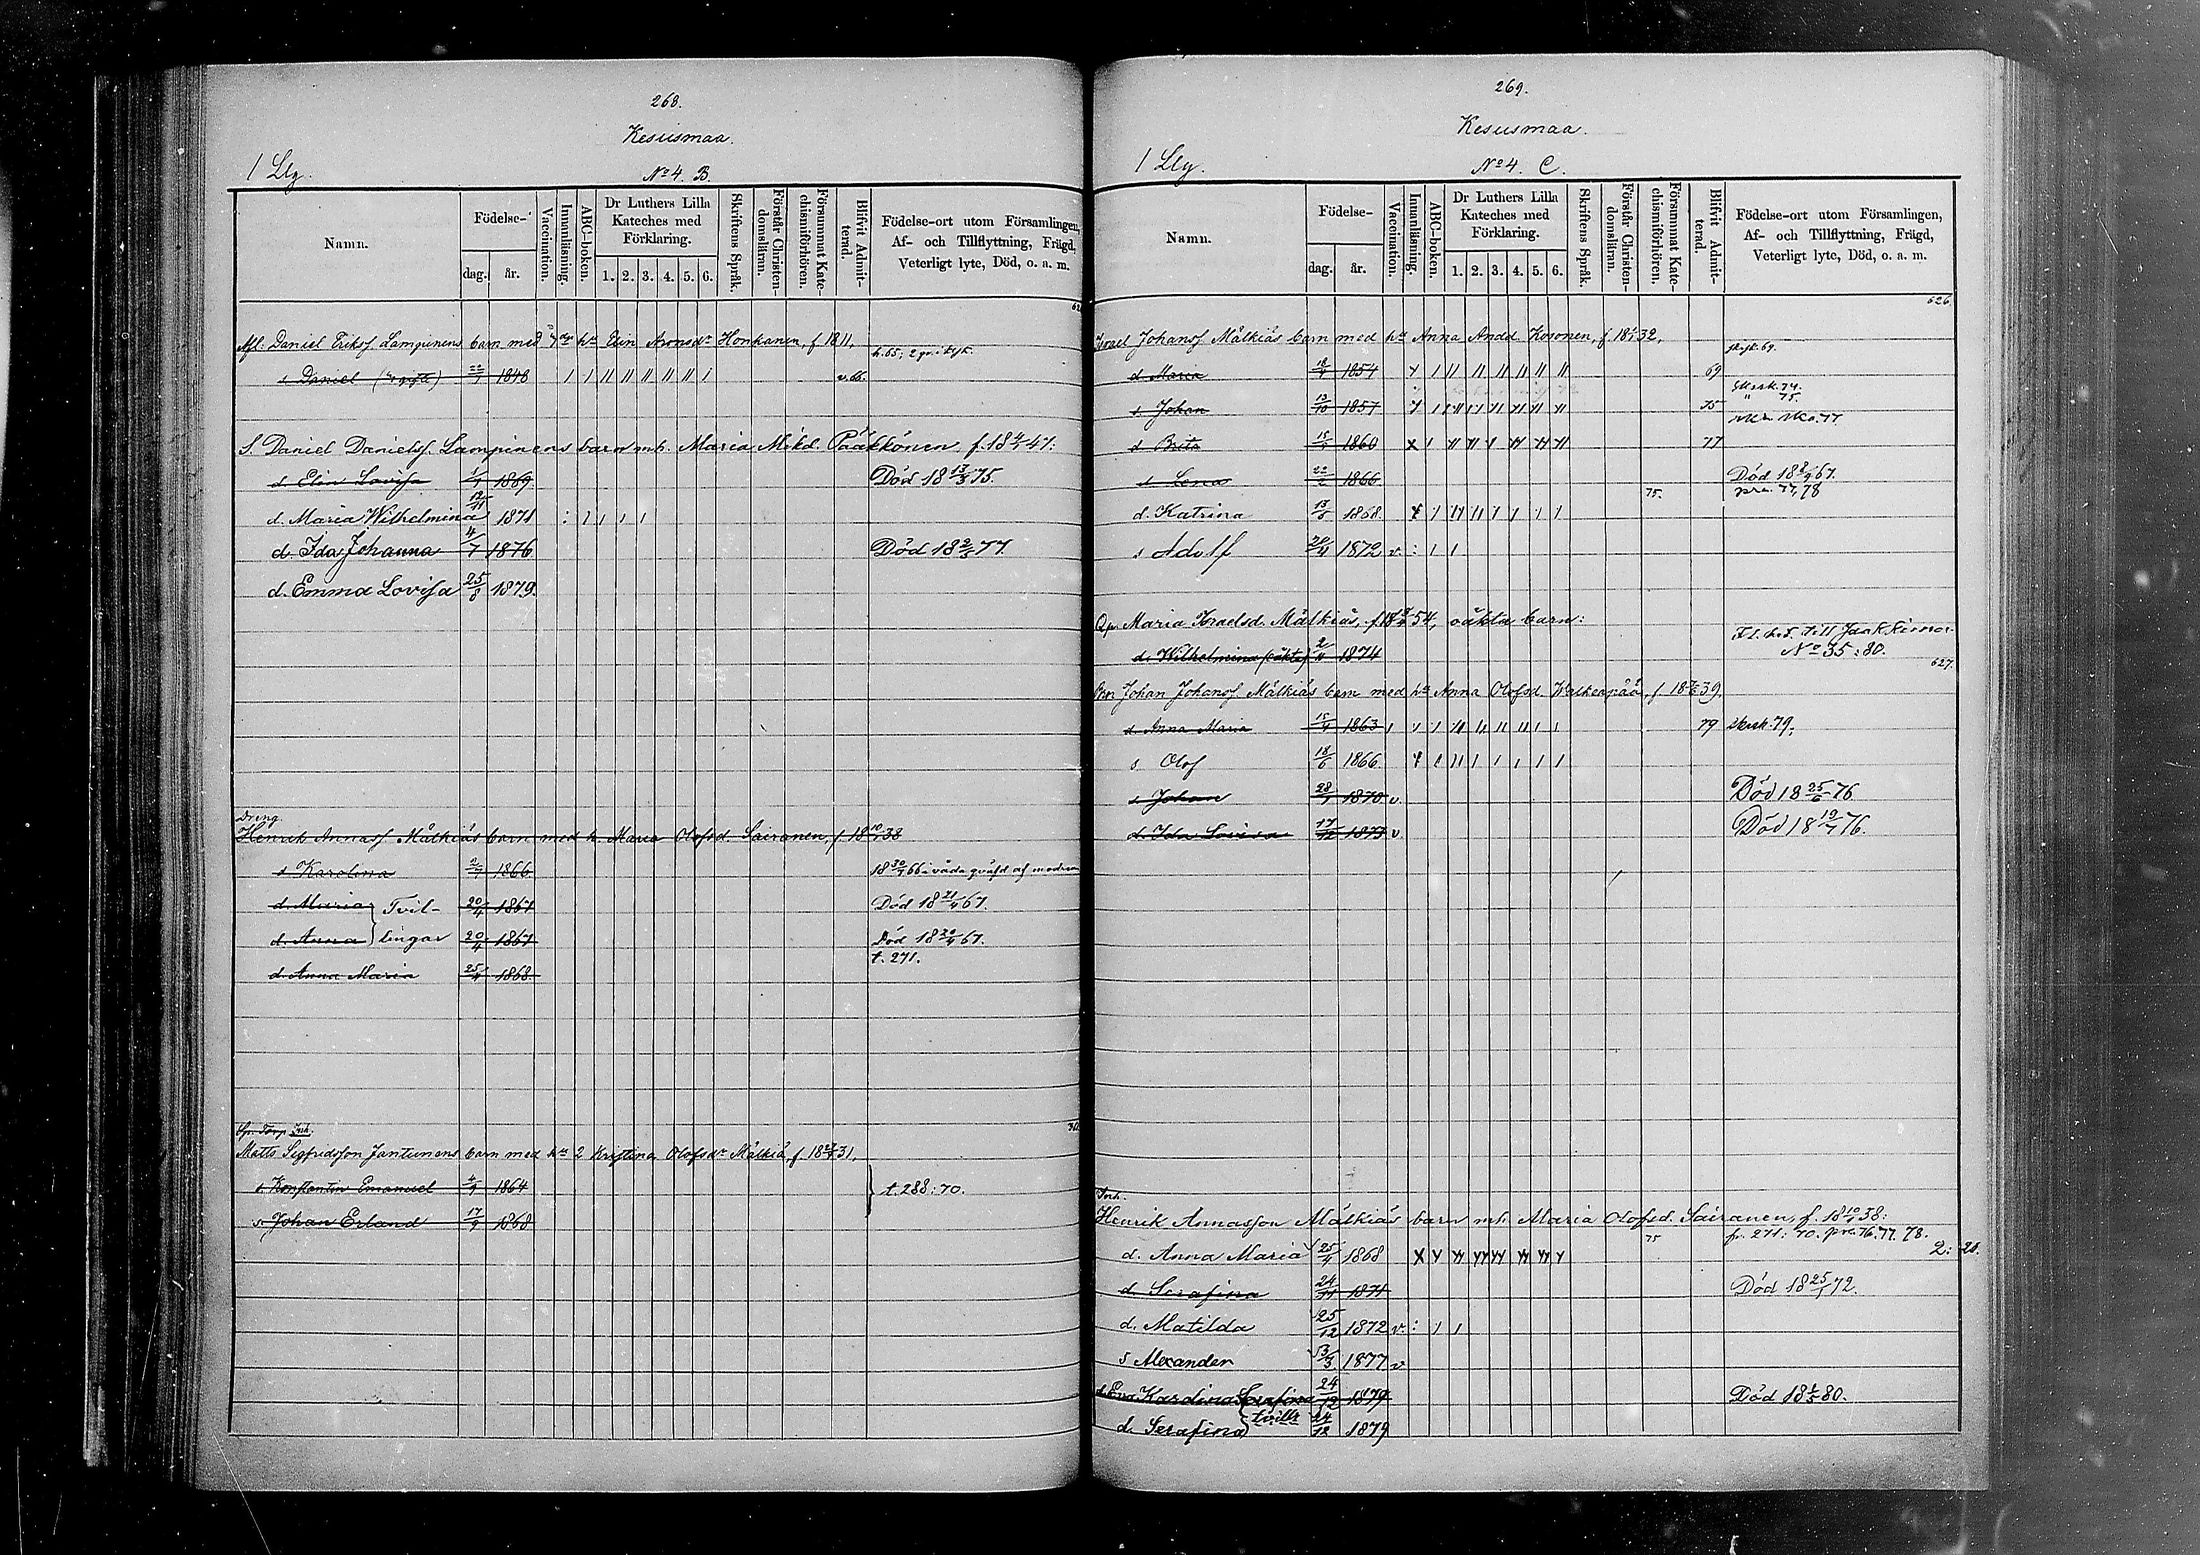 268.
Kesusmaa.
1 Llg. No 4. B.
Namn.
Födelse-
dag. år.
Vaccination.
Innanläsning.
ABC-boken.
Dr Luthers Lilla
Kateches med
Förklaring.
1. 2. 3. 4. 5. 6.
Skriftens Språk.
Förstår Christen-
domsläran.
Försummat Kate-
chismiförhören.
Blifvit Admit-
terad.
Födelse-ort utom Församlingen,
Af- och Tillflyttning, Frägd,
Veterligt lyte, Död, o. a. m.
Daniel Eriksf. Lampinens barn med h:u Elin Aronsdr Honkanen, f. 1811,
s. Daniel 22/1 1848 v. 66.
S. Daniel Danielsf. Lampinens barn mh. Maria Mikd. Pääkkönen f. 18 4/2 47:
d. Elin Lovisa 1/1 1869 Död 18 13/3 75.
d. Maria Wilhelmina 12/11 1871
d. Ida Johanna 4/7 1876 Död 18 2/3 77.
d. Emma Lovisa 25/8 1879.
Dreng.
Henrik Annasf Mälkiäs barn med h. Maria Olofsd. Sairanen, f. 18 10/1 38
s Karolina 2/7 1866 18 30/7 66 i våda qväfd af modren
d. Maria Tvil- 20/4 1867 Död 18 21/4 67.
d. Anna lingar 20/4 1867 Död 18 20/4 67.
t. 271.
d. Anna Maria 25/4 1868.
Sp. Torp. Inh.
Matts Sigfridsson Jantunens barn med h:u 2 Kristina Olofsdr Mälkiä, f. 18 27/7 31,
s. Konstantin Emanuel 4/9 1864 t. 288: 70.
s. Johan Erland 17/9 1868
269.
Kesusmaa.
1 Llg. No 4. C.
Namn.
Födelse-
dag. år.
Vaccination.
Innanläsning.
ABC-boken.
Dr Luthers Lilla
Kateches med
Förklaring.
1. 2. 3. 4. 5. 6.
Skriftens Språk.
Förstår Christen-
domsläran.
Försummat Kate-
chismiförhören.
Blifvit Admit-
terad.
Födelse-ort utom Församlingen,
Af- och Tillflyttning, Frägd,
Veterligt lyte, Död, o. a. m.
626
Israel Johansf Mälkiäs barn med h:u Anna Andd. Kosonen,
d Maria 18/4 1854 69
s. Johan 13/10 1857 75
d Brita 1860 77
s. Lena 22/2 1866 Död 18 67.
75. 77, 78
d. Katrina 1868
s Adolf 20/4 1872 v.
Maria Israelsd. Mälkiäs, oäkta barn:
d. Wilhelmina (oäkta) 1874 till Jaakkima
No 35: 80.
627.
Johan Johansf Mälkiäs barn med h:u Anna Olofsd. Valkeapää,
d. Anna Maria 15/4 1863 79 79.
s. Olof 18/6 1866
s. Johan 28/1 1870 v. Död 18 25/6 76
d. Ida Lovisa 17/12 1873 v Död 18 19/7 76.
Inh.
Henrik Annasson Mälkiäs barn mh. Maria Olofsd. Sairanen, f. 18 10/1 38:
75 fr. 271: 70. pr. 76. 77. 78.
d. Anna Maria 25/4 1868
d. Serafina 24/11 1871 Död 18 25/1 72.
d. Matilda 25/12 1872 v.
s Alexander 1877 v
d. Eva Karolina Serafina 24/12 1879 Död 18 1/5 80.
tvillr
d. Serafina 24/12 1879